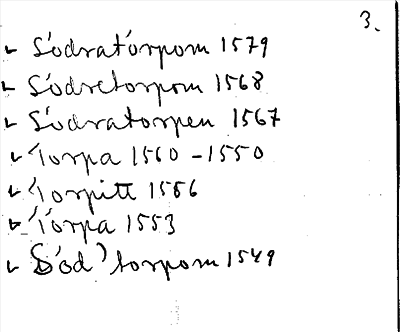 3.
Södratorpom 1579
Södretorpom 1568
Södratorpen 1567
Torpa 1560-1550
Torpitt 1556
Torpa 1553
Söd' torpom 1549